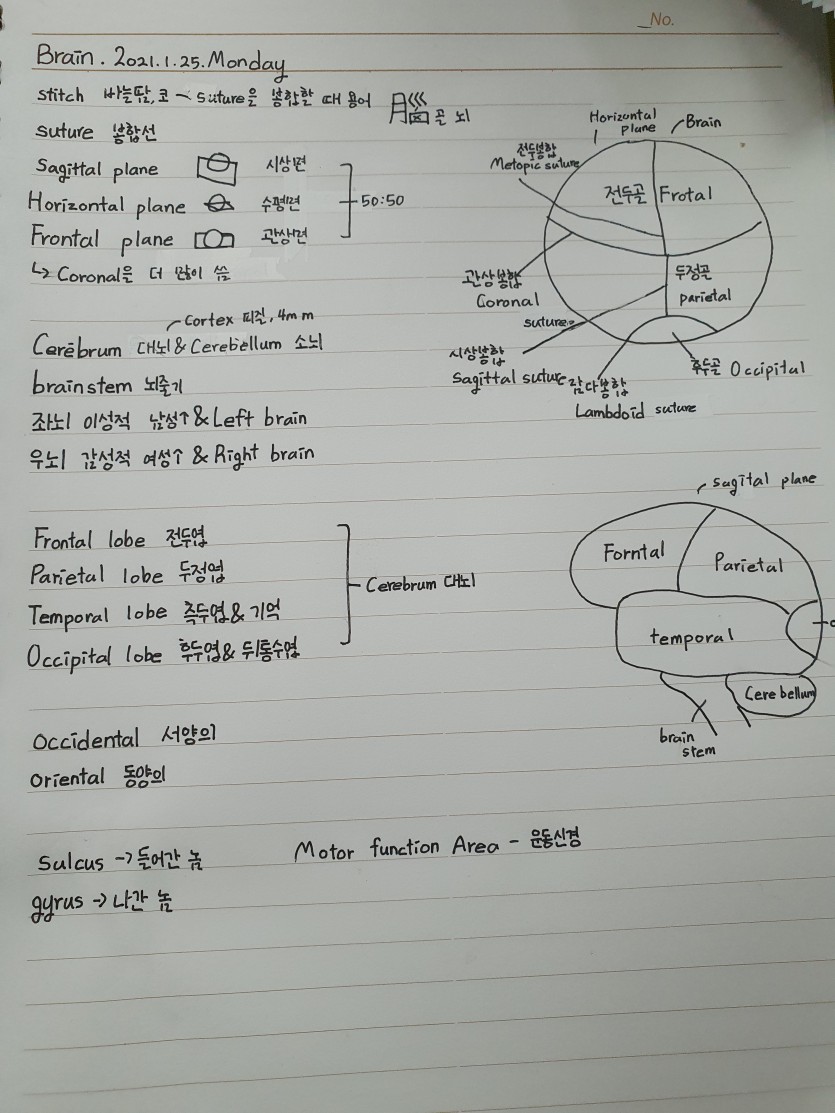 No.
Brain. 2021.1.25.Monday
stitch 바늘땀, 코 ~ suture을 봉합할 때 용어 골 뇌
suture 봉합선
Sagittal plane 시상면
Horizontal plane 수평면
50:50
Frontal plane 관상면
↳ Coronal을 더 많이 씀
Horizontal plane
Brain
전두봉합
Metopic suture
전두골 Frotal
두정골
parietal
관상봉합
Coronal
suture
시상봉합
Sagittal suture
람다봉합
Lambdoid suture
후두골 Occipital
Cortex 피질, 4mm
Cerebrum 대뇌 & Cerebellum 소뇌
brainstem 뇌줄기
좌뇌 이성적 남성↑ & Left brain
우뇌 감성적 여성↑ & Right brain
Frontal lobe 전두엽
Parietal lobe 두정엽
Cerebrum 대뇌
Temporal lobe 측두엽 & 기억
Occipital lobe 후두엽 & 뒤통수엽
sagital plane
Forntal
Parietal
temporal
Cerebellum
brain
stem
occidental 서양의
oriental 동양의
Sulcus -> 들어간 놈
Motor function Area - 운동신경
gyrus -> 나간 놈